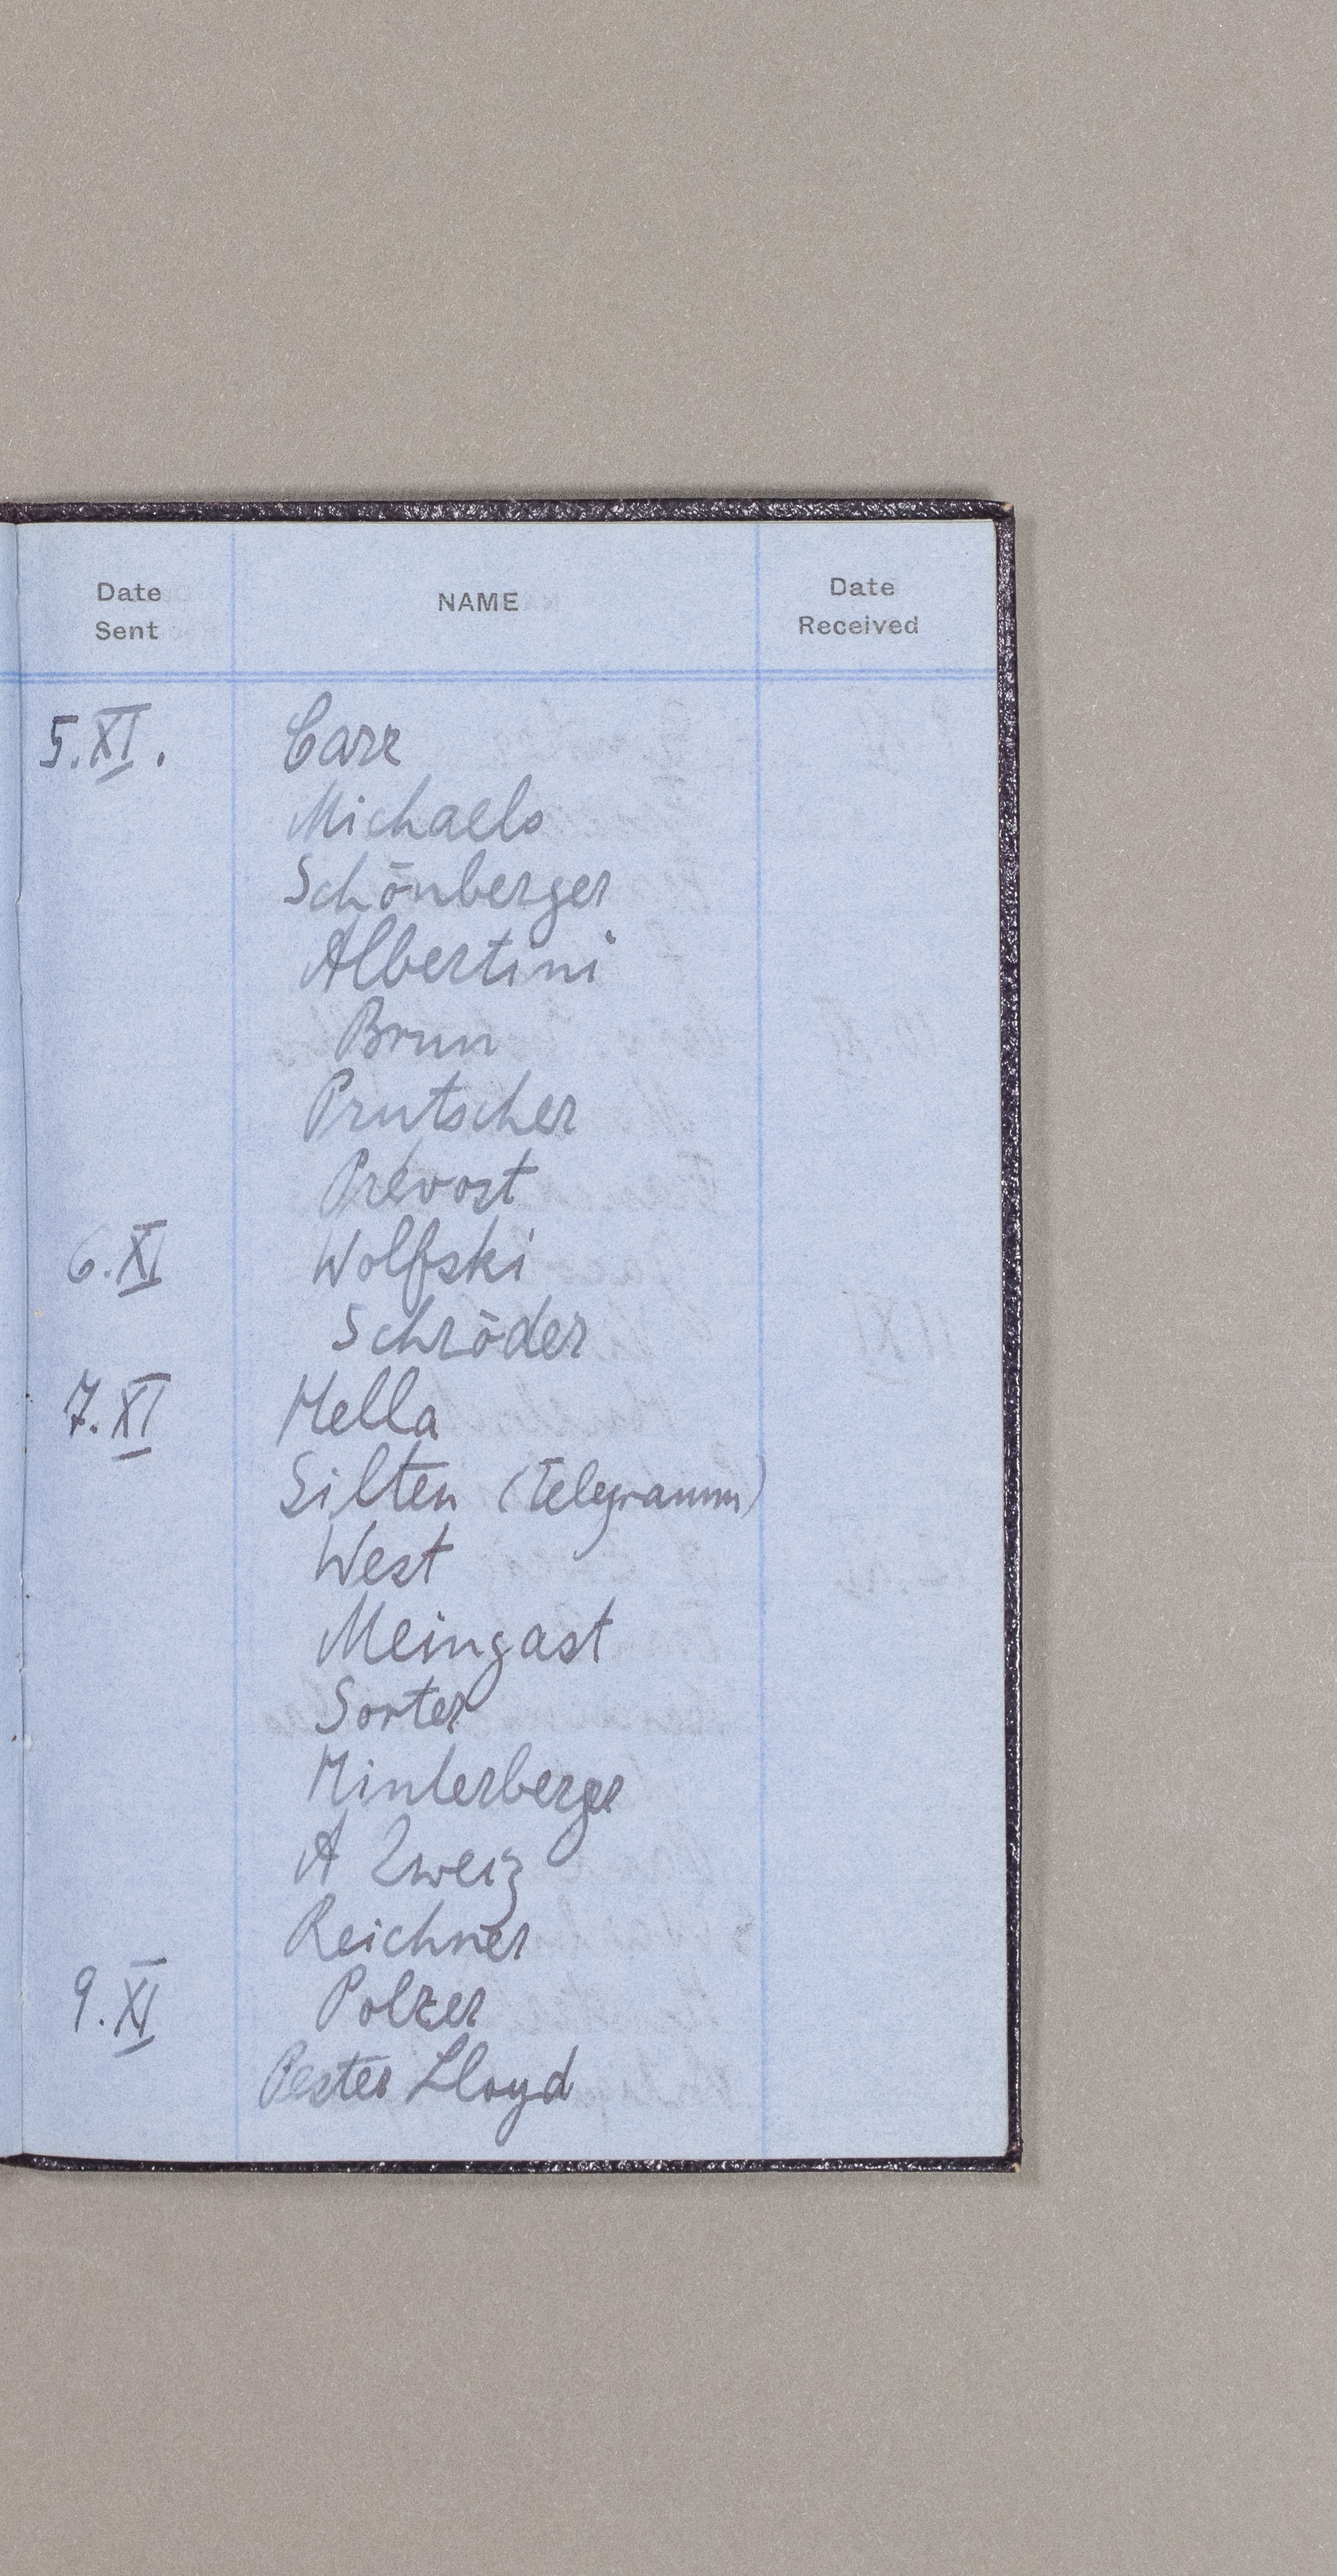 Date Sent NAME Date Received
5.XI. Carr
Michaels
Schönberger
Albertini
Brun
Prutscher
Prevost
6.XI Wolfski
Schröder
7.XI Hella
Silten (Telegramm)
West
Meingast
Sorter
Hinterberger
A Zweig
Reichner
9.XI Polzer
Pester Lloyd